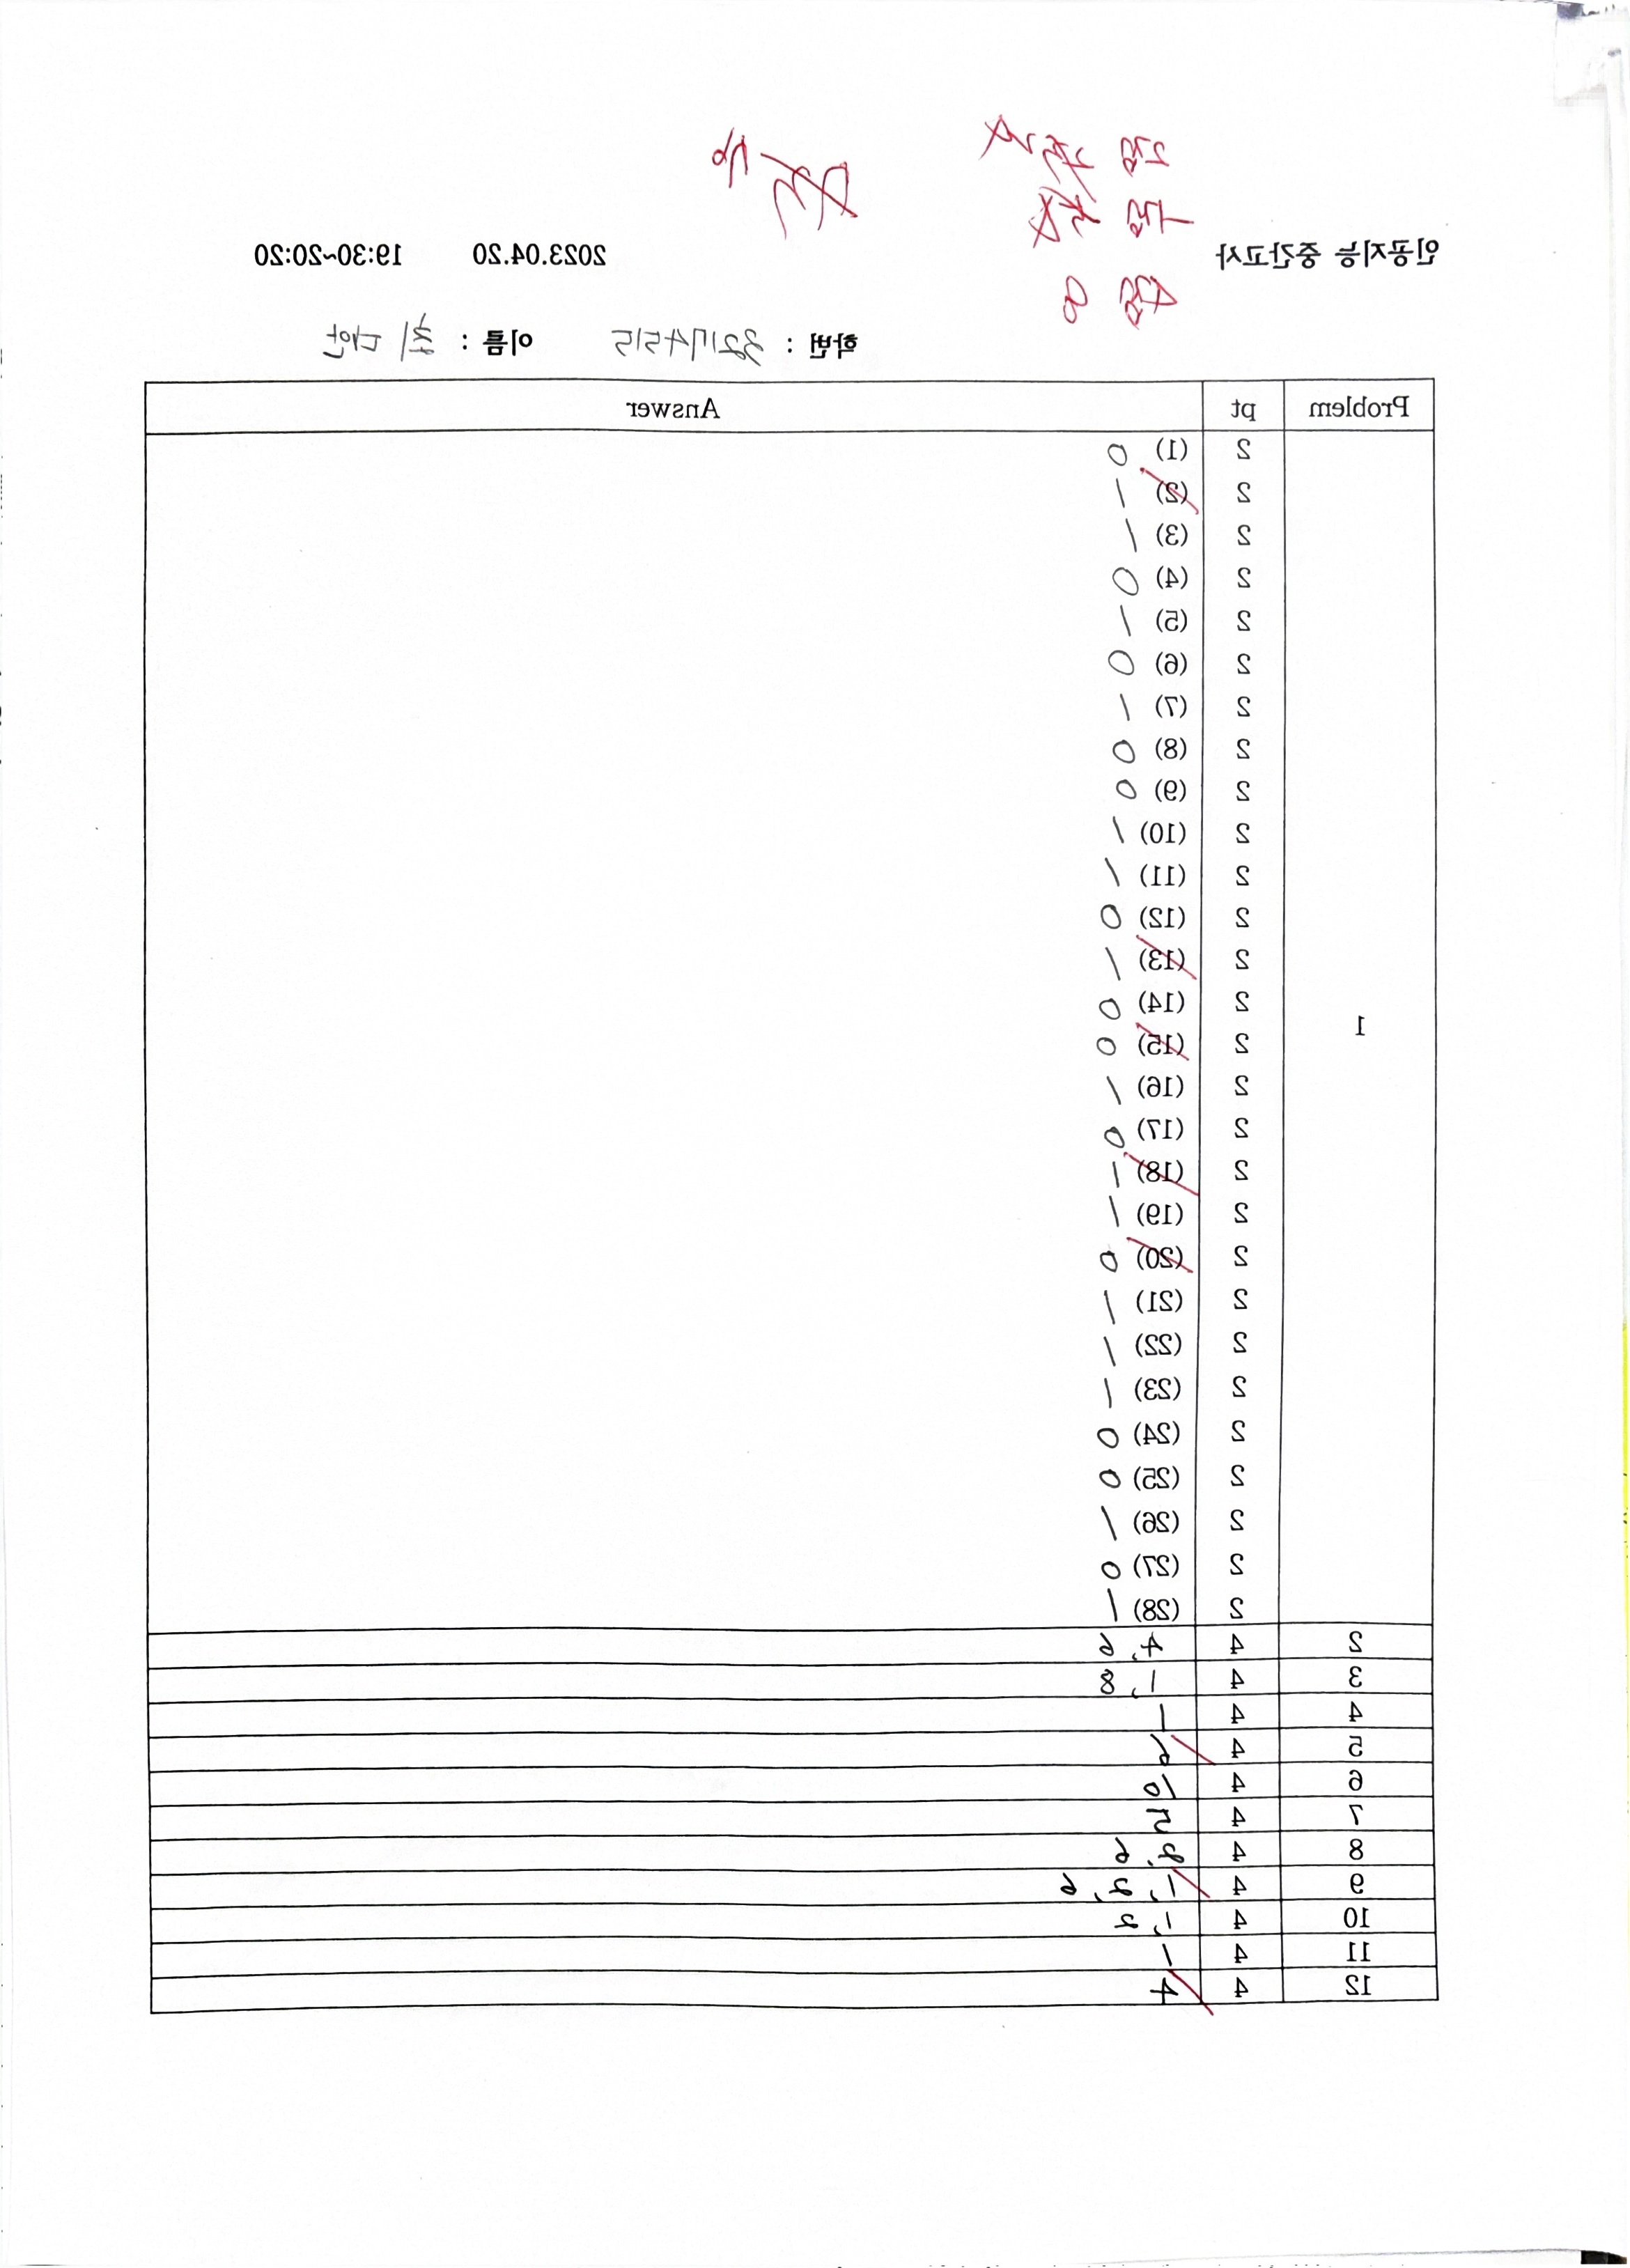 인공지능 중간고사 2023.04.20 19:30~20:20
학번 : 32174515 이름 : 최 다안
Problem pt Answer
1
2 (1) 0
2 (2) 1
2 (3) 1
2 (4) 0
2 (5) 1
2 (6) 0
2 (7) 1
2 (8) 0
2 (9) 0
2 (10) 1
2 (11) 1
2 (12) 0
2 (13) 1
2 (14) 0
2 (15) 0
2 (16) 1
2 (17) 0
2 (18) 1
2 (19) 1
2 (20) 0
2 (21) 1
2 (22) 1
2 (23) 1
2 (24) 0
2 (25) 0
2 (26) 1
2 (27) 0
2 (28) 1
2 4 4, 6
3 4 1, 8
4 4 1
5 4 6
6 4 10
7 4 5
8 4 2, 6
9 4 1, 2, 6
10 4 1, 2
11 4 1
12 4 4